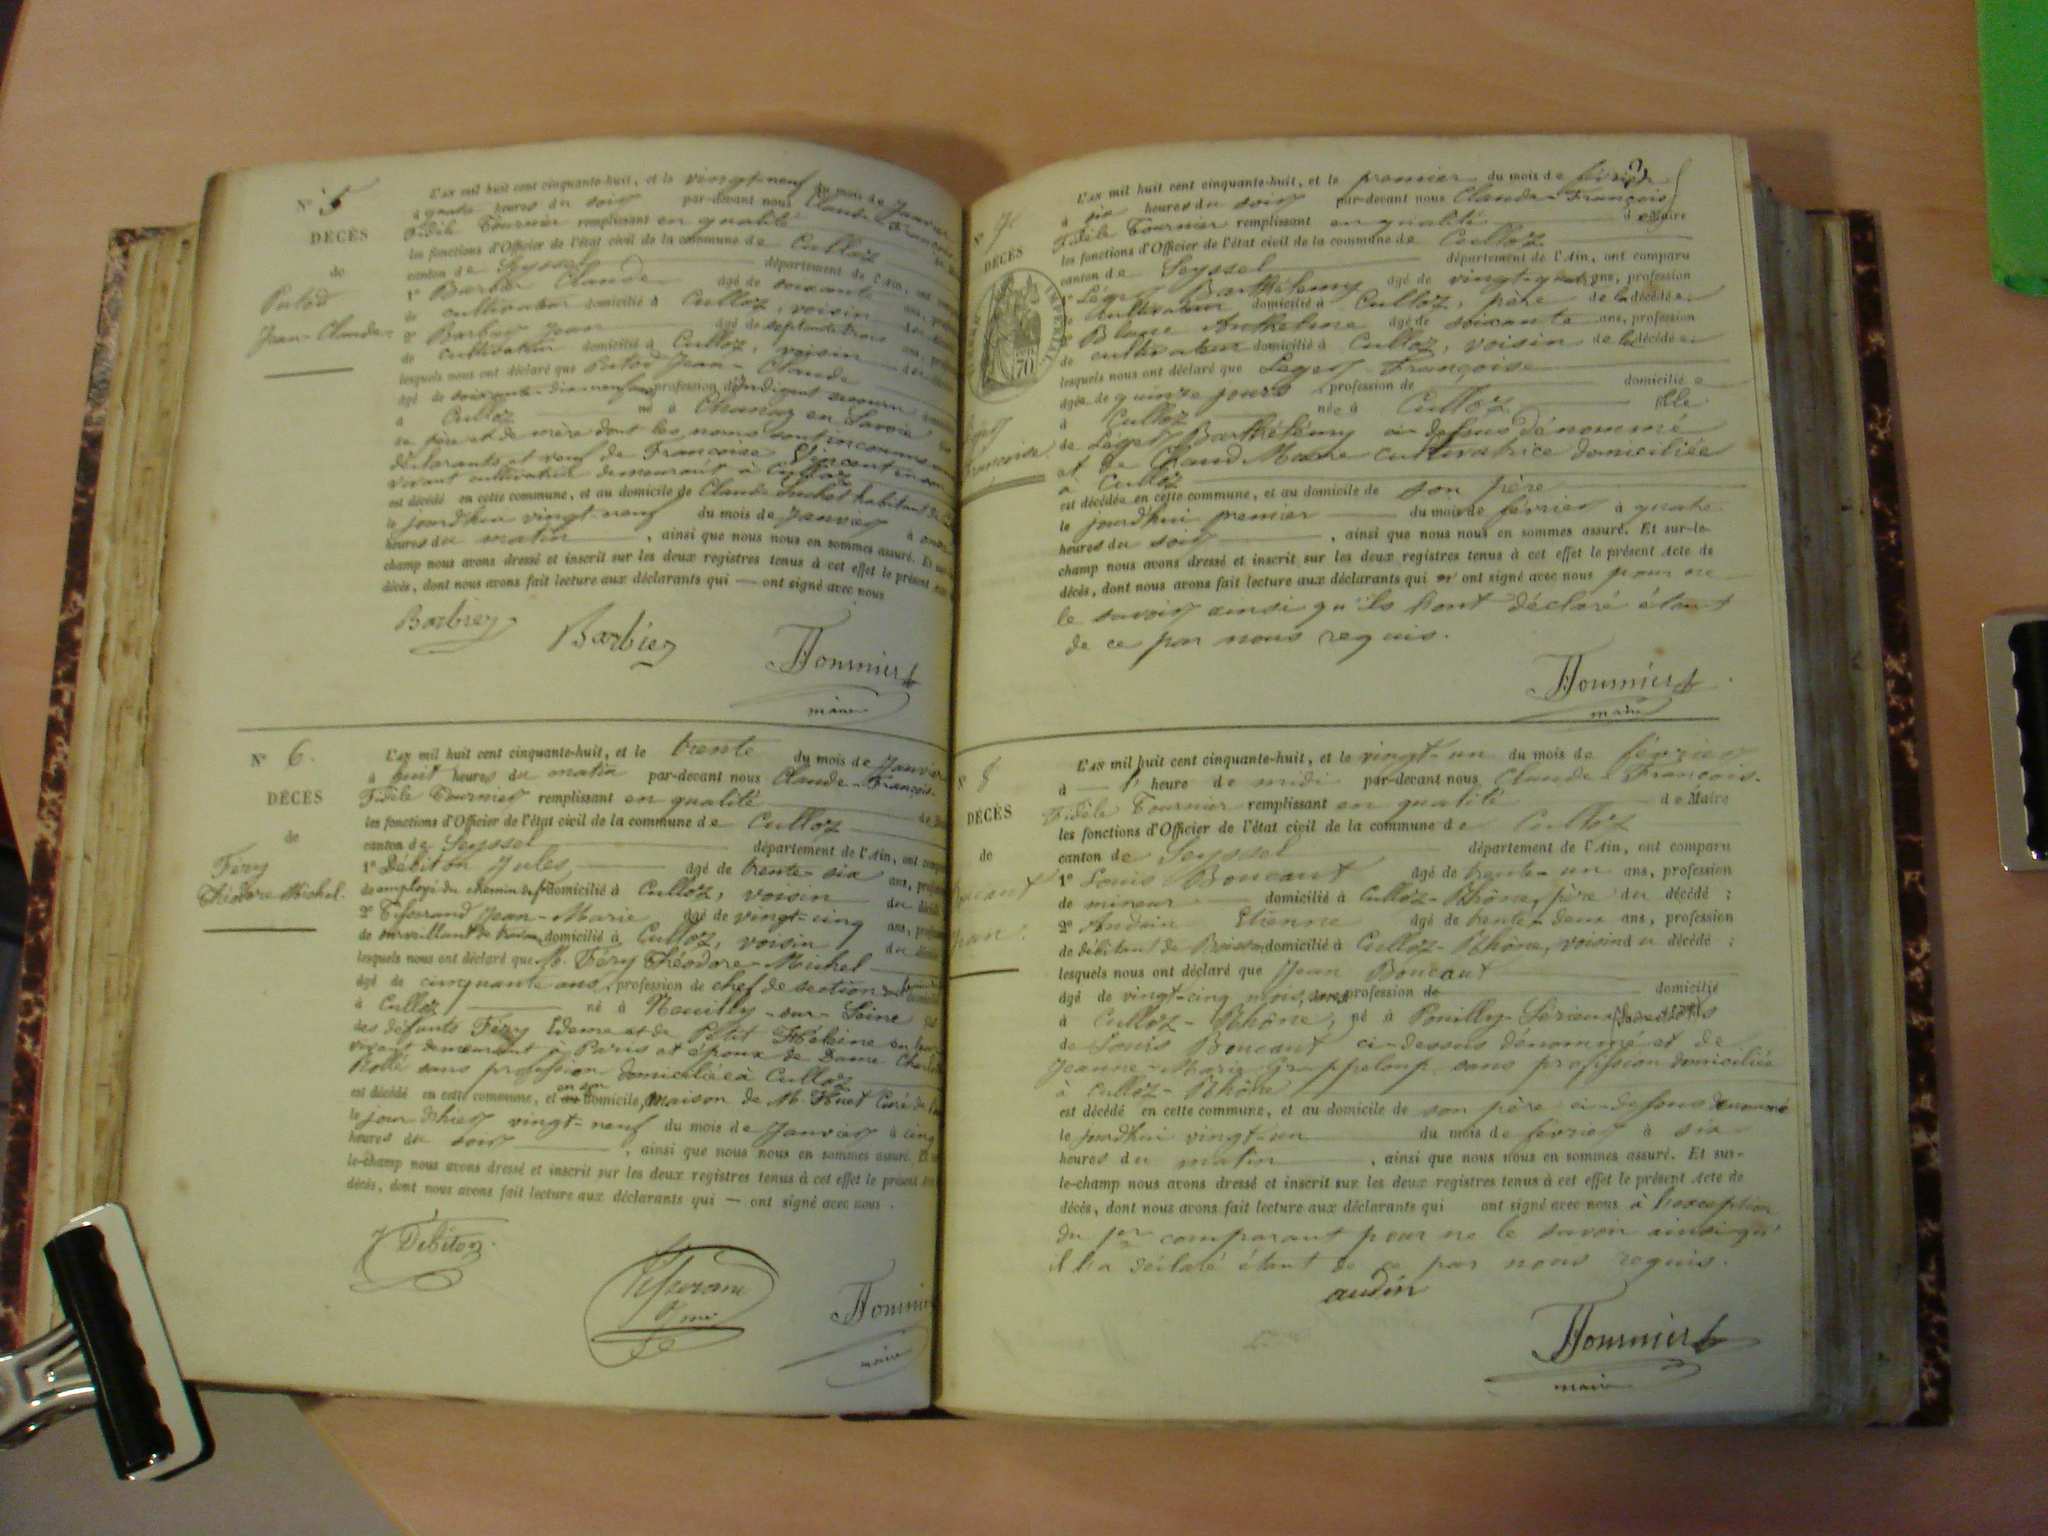 N° 5
DÉCÈS
de
Putod
Jean-Claude
L'AN mil huit cent cinquante-huit, et le vingt-neuf du mois de Janvier
à quatre heures du soir par-devant nous Claude François
Fidèle Fournier remplissant en qualité
les fonctions d'Officier de l'état civil de la commune de Culloz
canton de Seyssel département de l'Ain, ont
1° Barbier Claude âgé de soixante ans,
de cultivateur domicilié à Culloz, voisin
2° Barbier Jean âgé de septante trois ans,
de cultivateur domicilié à Culloz, voisin
lesquels nous ont déclaré que Putod Jean-Claude
âgé de soixante-dix-neuf ans profession d'indigent
à Culloz né à Chanaz en Savoie
de père et de mère dont les noms sont inconnus
déclarants et veuf de Françoise Vincent en son
vivant cultivatrice demeurant à Culloz
est décédé en cette commune, et au domicile de Claude Suchet habitant de
le jourd'hui vingt-neuf du mois de Janvier à
heures du matin , ainsi que nous nous en sommes assuré. Et
champ nous avons dressé et inscrit sur les deux registres tenus à cet effet le présent
décès, dont nous avons fait lecture aux déclarants qui — ont signé avec nous
Barbier Barbier Fournier
maire
N° 6.
DÉCÈS
de
Féry
Théodore Michel.
L'AN mil huit cent cinquante-huit, et le trente du mois de Janvier
à huit heures du matin par-devant nous Claude-François-
Fidèle Fournier remplissant en qualité
les fonctions d'Officier de l'état civil de la commune de Culloz
canton de Seyssel département de l'Ain, ont
1° Débiton Jules âgé de trente-six ans,
de employé du chemin de fer domicilié à Culloz, voisin du
2° Tisserand Jean-Marie âgé de vingt-cinq ans,
de surveillant de travaux domicilié à Culloz, voisin du
lesquels nous ont déclaré que M. Féry Théodore-Michel
âgé de cinquante ans, profession de chef de section
à Culloz né à Neuilly-sur-Seine
des défunts Féry Edome et de Petit Hélène en leur
vivant demeurant à Paris et époux de Dame
sans profession domiciliée à Culloz
est décédé en cette commune, et en son domicile, maison de M. Huet Curé de
le jour d'hier vingt-neuf du mois de Janvier à cinq
heures du soir , ainsi que nous nous en sommes assuré. Et
le-champ nous avons dressé et inscrit sur les deux registres tenus à cet effet le présent
décès, dont nous avons fait lecture aux déclarants qui — ont signé avec nous .
J Débiton. Tisserand
Fournier
maire
N° 7
DÉCÈS
IMPÉRIAL
70
Françoise.
L'AN mil huit cent cinquante-huit, et le premier du mois de février
à six heures du soir par-devant nous Claude-François
Fidèle Fournier remplissant en qualité de Maire
les fonctions d'Officier de l'état civil de la commune de Culloz
canton de Seyssel département de l'Ain, ont comparu
1° Léger Barthélemy âgé de vingt-quatre ans, profession
de Cultivateur domicilié à Culloz, père de la décédée
2° Blanc Anthelme âgé de soixante ans, profession
de cultivateur domicilié à Culloz, voisin de la décédée
lesquels nous ont déclaré que Léger Françoise
âgée de quinze jours profession de domiciliée
à Culloz née à Culloz fille
de Léger Barthélemy ci-dessus dénommé
et de Claud Marie cultivatrice domiciliée
à Culloz
est décédée en cette commune, et au domicile de son père
le jourd'hui premier du mois de février à quatre
heures du soir , ainsi que nous nous en sommes assuré. Et sur-le-
champ nous avons dressé et inscrit sur les deux registres tenus à cet effet le présent Acte de
décès, dont nous avons fait lecture aux déclarants qui n' ont signé avec nous pour ne
le savoir ainsi qu'ils l'ont déclaré étant
de ce par nous requis.
Fournier
maire
N° 8
DÉCÈS
de
Boucaut
Jean:
L'AN mil huit cent cinquante-huit, et le vingt-un du mois de février
à 1 heure de midi par-devant nous Claude-François-
Fidèle Fournier remplissant en qualité de Maire
les fonctions d'Officier de l'état civil de la commune de Culloz
canton de Seyssel département de l'Ain, ont comparu
1° Louis Boucaut âgé de trente-un ans, profession
de mineur domicilié à Culloz-Rhône, père du décédé ;
2° Audain Etienne âgé de trente-deux ans, profession
de débitant de Boisson domicilié à Culloz-Rhône, voisin du décédé ;
lesquels nous ont déclaré que Jean Boucaut
âgé de vingt-cinq mois, sans profession de domicilié
à Culloz-Rhône, né à Pouilly
de Louis Boucaut ci-dessus dénommé et de
Jeanne-Marie Grappeloup sans profession domiciliée
à Culloz-Rhône
est décédé en cette commune, et au domicile de son père ci-dessus dénommé
le jourd'hui vingt-un du mois de février à six
heures du matin , ainsi que nous nous en sommes assuré. Et sur-
le-champ nous avons dressé et inscrit sur les deux registres tenus à cet effet le présent Acte de
décès, dont nous avons fait lecture aux déclarants qui ont signé avec nous à l'exception
du 1er comparant pour ne le savoir ainsi qu'
il l'a déclaré étant de ce par nous requis.
audin
Fournier
maire